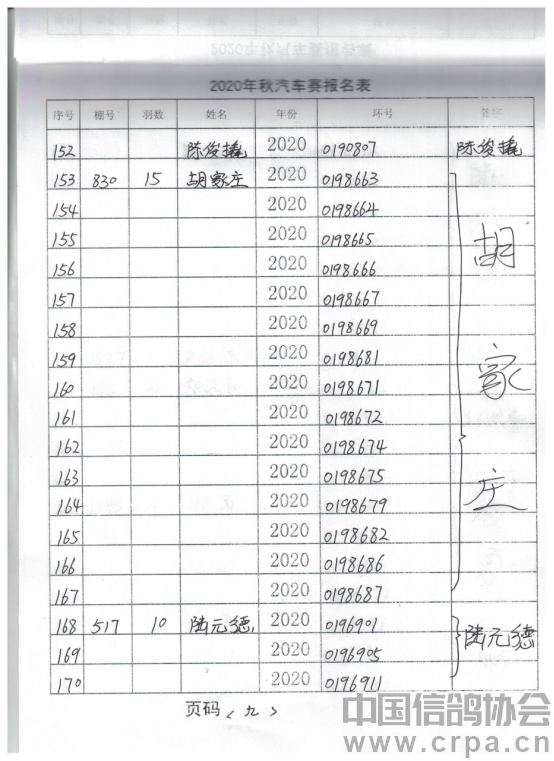 2020年秋汽车赛报名表
序号 棚号 羽数 姓名 年份 环号 签字
152 陈俊撬 2020 0190807 陈俊撬
153 830 15 胡家庄 2020 0198663
154 2020 0198664
155 2020 0198665
156 2020 0198666
157 2020 0198667
158 2020 0198669
159 2020 0198681
160 2020 0198671
161 2020 0198672
162 2020 0198674
163 2020 0198675
164 2020 0198679
165 2020 0198682
166 2020 0198686
167 2020 0198687
胡家庄
168 517 10 陆元德 2020 0196901 陆元德
169 2020 0196905
170 2020 0196911
页码<九>
中国信鸽协会
www.crpa.cn